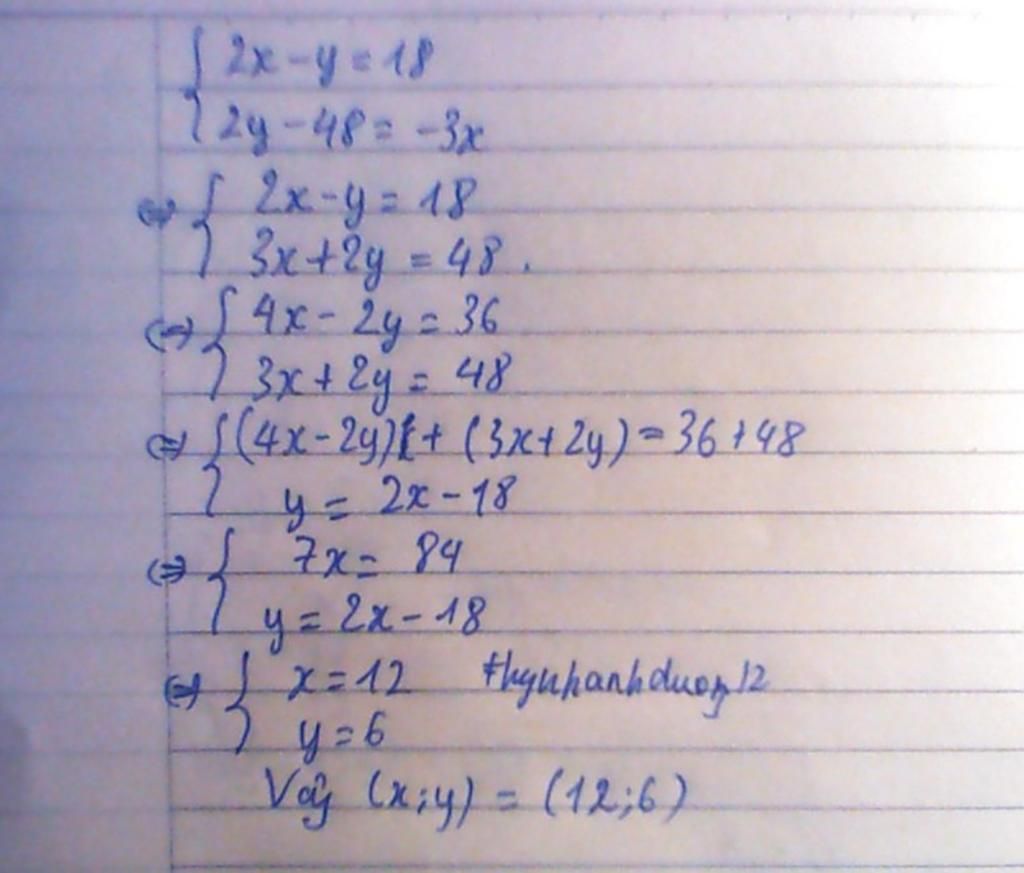 { 2x - y = 18
2y - 48 = -3x
⇔ { 2x - y = 18
3x + 2y = 48.
⇔ { 4x - 2y = 36
3x + 2y = 48
⇔ { (4x - 2y) + (3x + 2y) = 36 + 48
y = 2x - 18
⇔ { 7x = 84
y = 2x - 18
⇔ { x = 12 thyuhanhduong12
y = 6
Vậy (x; y) = (12; 6)